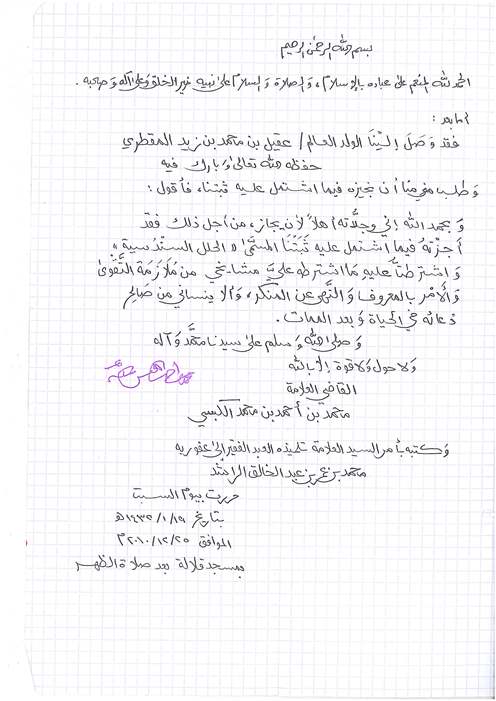 بسم الله الرحمن الرحيم
الحمد لله المنعم على عباده بالإسلام، والصلاة والسلام على نبيه خير الخلق وعلى آله وصحبه.
أما بعد:
فقد وَصَلَ إلَيْنَا الولد العالم/ عقيل بن محمد بن زيد المقطري
حفظه الله تعالى وبارك فيه
وَطلب مني منا أن نجيزه فيما اشتمل عليه ثبتنا، فأقول:
وَبحمد الله إني وجدته أهلاً لأن يجاز، من أجل ذلك فقد
أجزته فيما اشتمل عليه ثَبَتُنَا المسمَّى «الحلل السندسية»
وَاشترطنا عليه ما اشترطه عليَّ مشايخي من مُلَازَمَة التَّقْوَى
وَالأمْر بالمعروف وَالنَّهي عن المنكر، وَألا ينساني من صَالِح
دعائه في الحياة وَبعد الممات.
وَصلى الله وَسلم على سيدنا محمَّد وَآله
وَلا حول وَلا قوة إلا بالله
القاضي العلامة
محمد بن أحمد بن محمد الكبسي
وَكتبه بأمر السيد العلامة تلميذه العبد الفقير إلى عفو ربه
محمد بن عمر بن عبد الخالق الراشد
حررت بيوم السبت
بتاريخ ١٤٣٢/١/١٩هـ
الموافق ٢٠١٠/١٢/٢٥م
بمسجد قلالة بعد صلاة الظهر